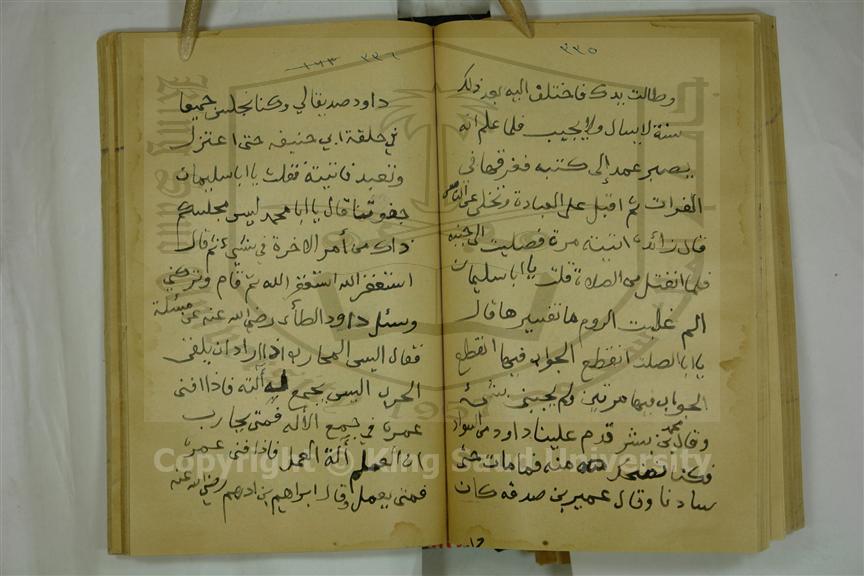 ٣٣٥
وطالت يدك فاختلف اليه بعد ذلك
سنة لا يسال ولا يجيب فلما علم انه
يصبر عمد إلى كتبه فغرقها في
الفرات ثم اقبل على العبادة وتخلى عن الناس
قال زائدة اتيته مرة فصليت الى جنبه
فلما انفتل من الصلاة قلت يا ابا سليمان
الم غلبت الروم ما تفسيرها قال
يا ابا الصلت انقطع الجواب فيها انقطع
الجواب فيها مرتين ولم يجبني بشيء
وقال محمد بن بشر قدم علينا داود من السواد
فكنا نضحك منه فما مات حتى
سادنا وقال عمير بن صدقه كان
٣٣٦ ١٦٣
داود صديقا لي وكنا نجلس جميعا
في حلقة ابي حنيفه حتى اعتزل
وتعبد فاتيته فقلت يا ابا سليمان
جفوتنا قال يا ابا محمد ليس مجلسكم
ذاك من أمر الاخرة في شيء ثم قال
استغفر الله استغفر الله ثم قام وتركني
وسئل داود الطائي رضي الله عنه عن مسئلة
فقال اليس المحارب اذا اراد ان يلقى
الحرب اليس يجمع له آلته فاذا افنى
عمره في جمع الآله فمتى يحارب
ان العلم آلة العمل فاذا فنى عمره
فمتى يعمل وقال ابراهيم بن ادهم رضي الله عنه
Copyright © King Saud University